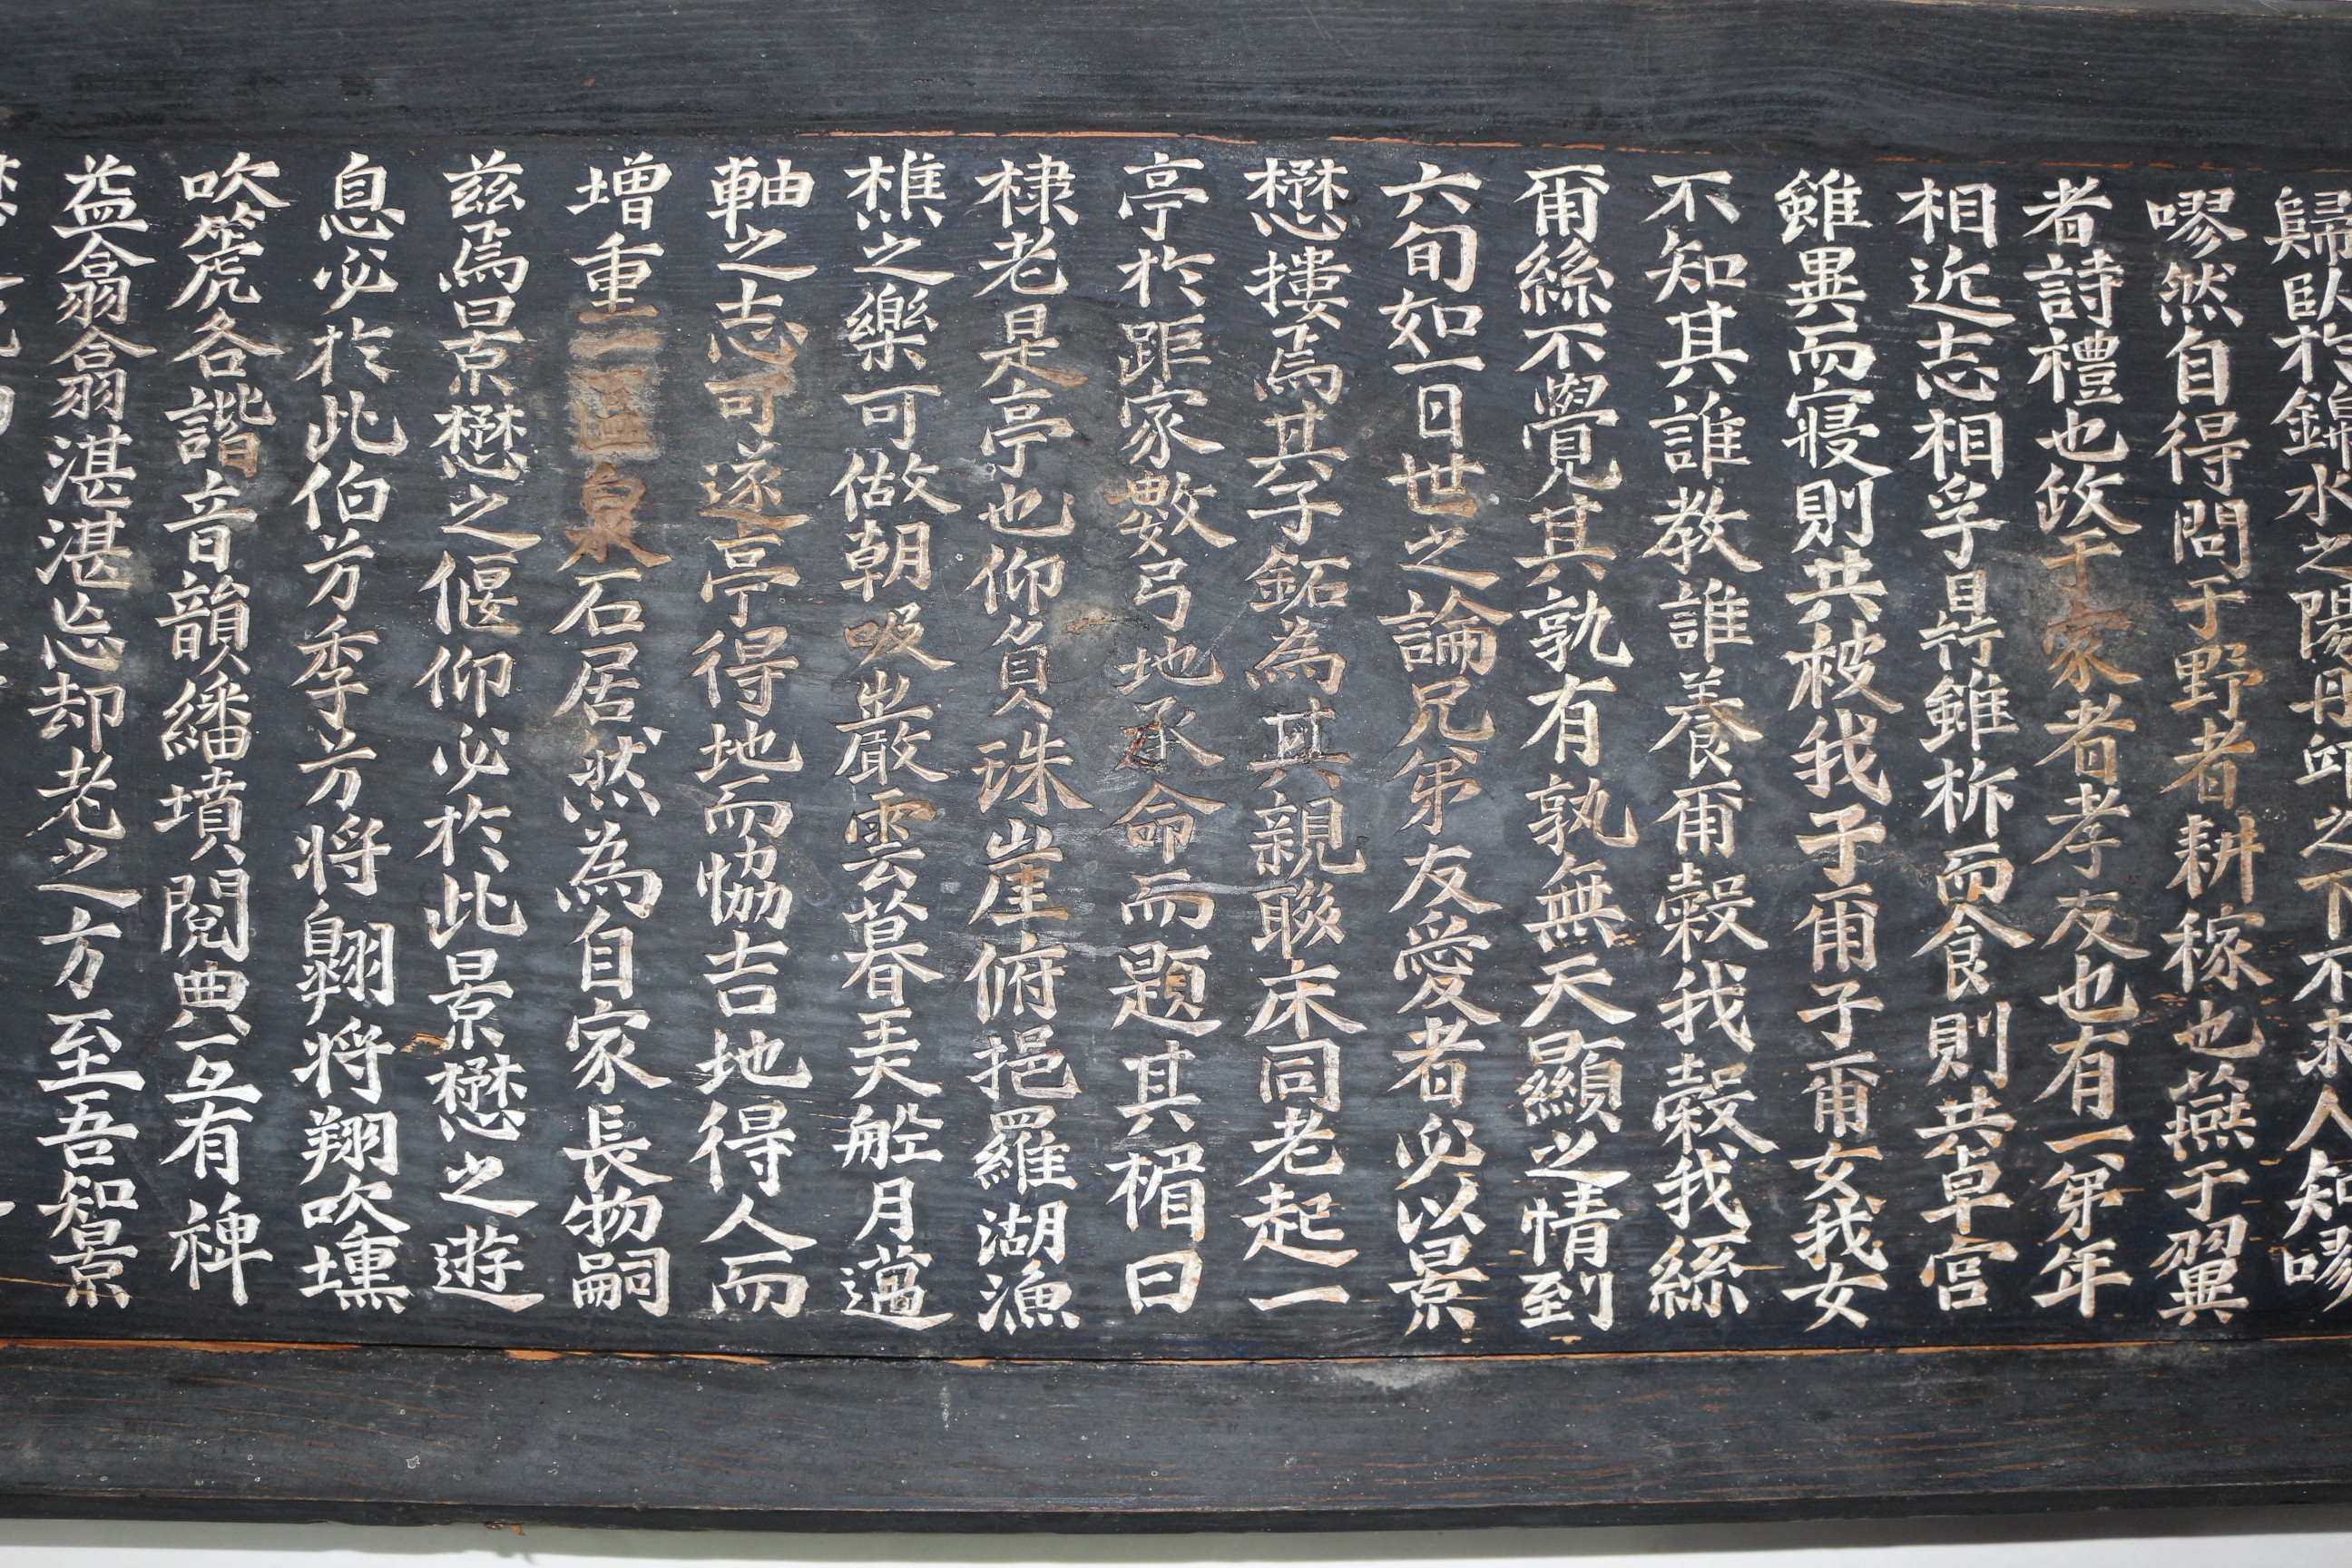 歸臥於錦水之陽丹邱之下不求人知嘐
嘐然自得問于野者耕稼也燕于翼
者詩禮也政于家者孝友也有一弟年
相近志相孚是以雖析而食則共卓宮
雖異而寢則共被我子甫子甫女我女
不知其誰教誰養甫穀我穀我絲
甫絲不覺其孰有孰無天顯之情到
六旬如一日世之論兄弟友愛者必以景
懋摟焉其子鉐為其親聯床同老起一
亭於距家數弓地承命而題其楣曰
棣老是亭也仰負珠崖俯挹羅湖漁
樵之樂可做朝吸巖雲暮美船月薖
軸之志可遂亭得地而恊吉地得人而
增重一區泉石居然為自家長物嗣
玆焉景懋之偃仰必於此景懋之遊
息必於此伯芳季芳將翶將翔吹壎
吹篪各諧音韻繙墳閱典互有裨
益翕翕湛湛忘却老之方至吾知景